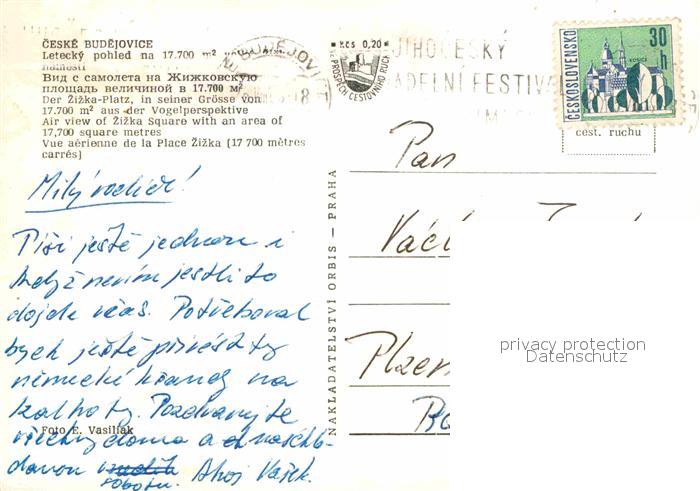 ČESKÉ BUDĚJOVICE
Letecký pohled na 17.700 m²
náměstí
Вид с самолета на Жижковскую
площадь величиной в 17.700 м²
Der Žižka-Platz, in seiner Grösse von
17.700 m² aus der Vogelperspektive
Air view of Žižka Square with an area of
17,700 square metres
Vue aérienne de la Place Žižka (17 700 mètres
carrés)
Milý rodiče!
Píši ještě jednou i
když nevím jestli to
dojde včas. Potřeboval
bych ještě přivést ty
německé kšandy na
kalhoty. Pozdravujte
všechny doma a
sobotu. Ahoj Vašek.
Foto E. Vasiliak
NAKLADATELSTVÍ ORBIS — PRAHA
Kčs 0,20
VE PROSPĚCH CESTOVNÍHO RUCHU
JIHOČESKÝ
FESTIVA
ČESKOSLOVENSKO
30 h
KOŠICE
cest. ruchu
Pan
Václ
Plzen
privacy protection
Datenschutz